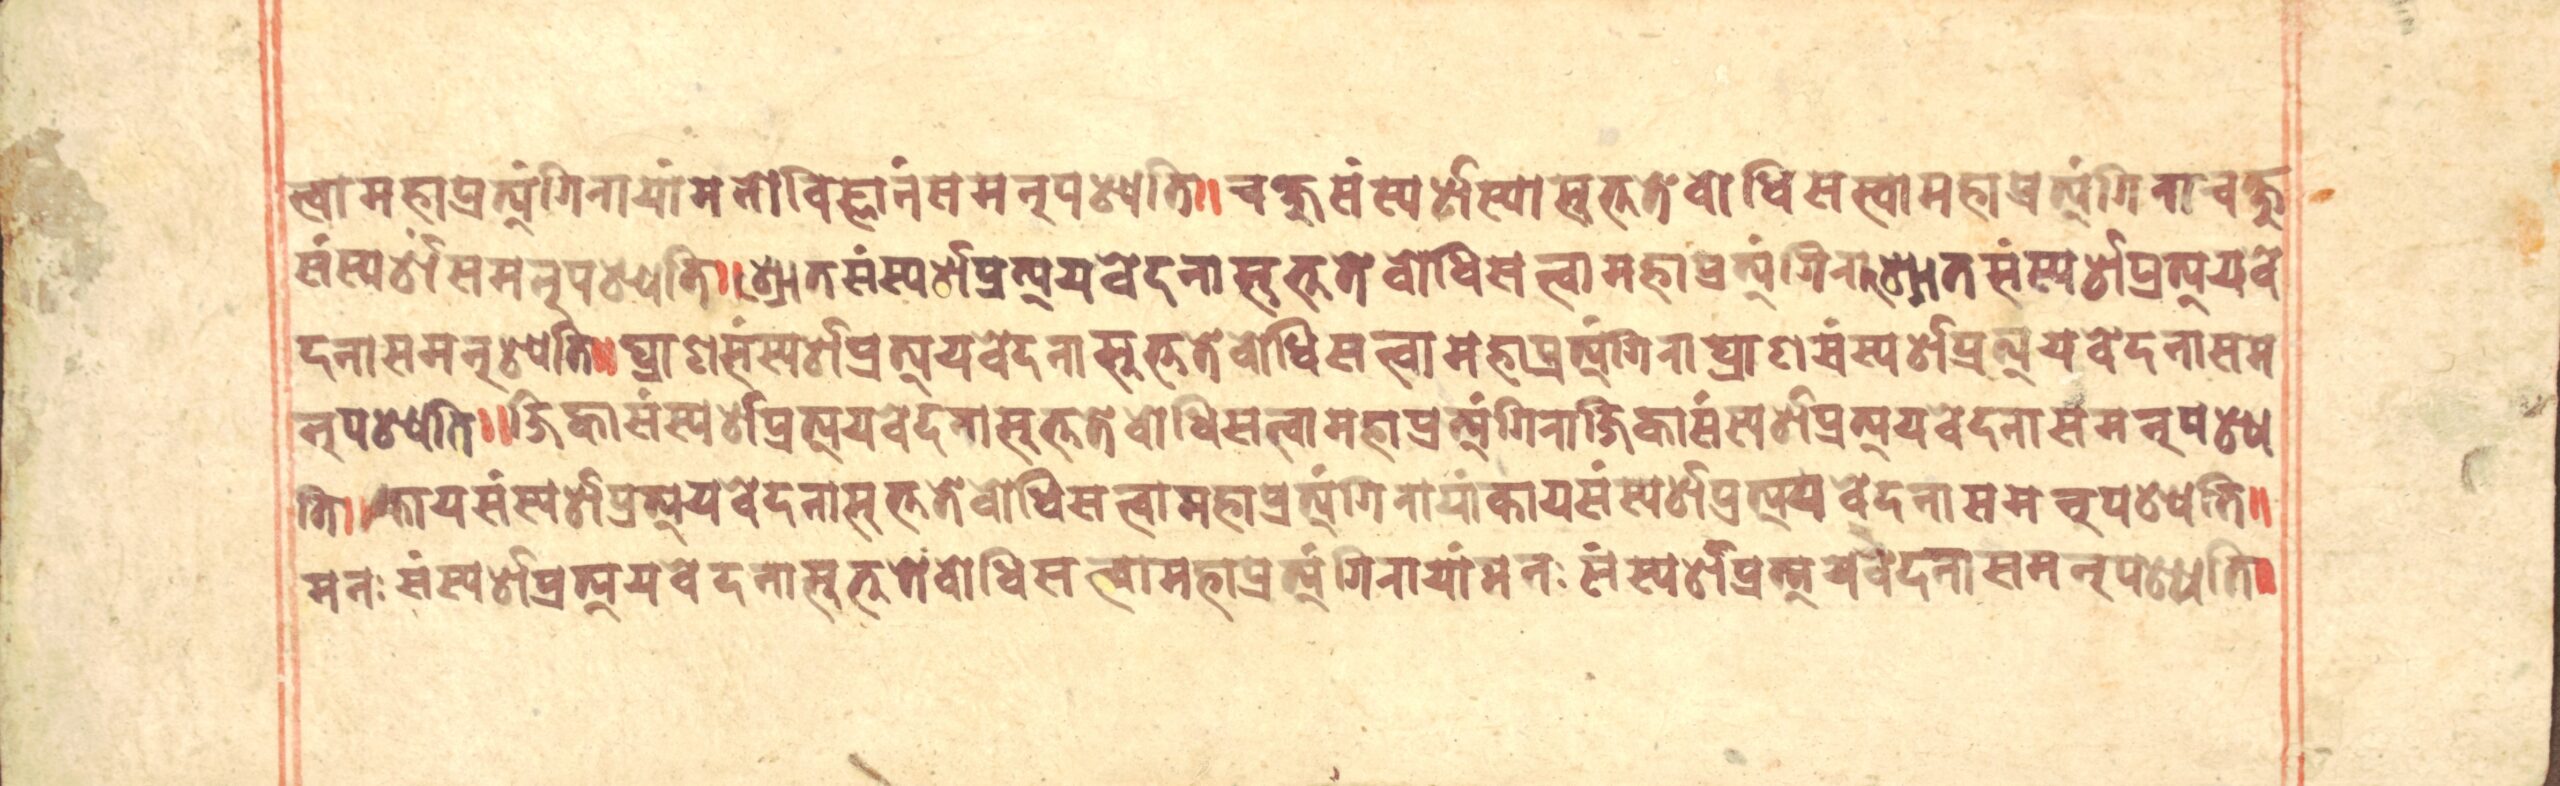 त्वा महाप्रत्यंगिनायां मनोविज्ञानं समनुपश्यति॥ चक्षुसंस्पर्शस्या सुभुते बोधिसत्वा महाप्रत्यंगिना चक्षु
संस्पर्शं समनुपश्यति॥ श्रोतसंस्पर्शप्रत्ययवेदना सुभुते बोधिसत्त्वा महाप्रत्यंगिना श्रोतसंस्पर्शप्रत्ययवे
दना समनुश्यति॥ घ्राणसंस्पर्शप्रत्ययवेदना सुभुते बोधिसत्त्वा महाप्रत्यंगिना घ्राणसंस्पर्शप्रत्ययवेदना सम
नुपश्यति॥ जिह्वासंस्पर्शप्रत्ययवेदना सुभुते बोधिसत्वा महाप्रत्यंगिना जिह्वासंस्पर्शप्रत्ययवेदना समनुपश्य
ति॥ कायसंस्पर्शप्रत्ययवेदना सुभुते बोधिसत्त्वा महाप्रत्यंगिनायां कायसंस्पर्शप्रत्ययवेदना समनुपश्यति॥
मनः संस्पर्शप्रत्ययवेदना सुभुतें बोधिसत्त्वा महाप्रत्यंगिनायां मनः संस्पर्शप्रत्ययेवेदना समनुपश्यति॥